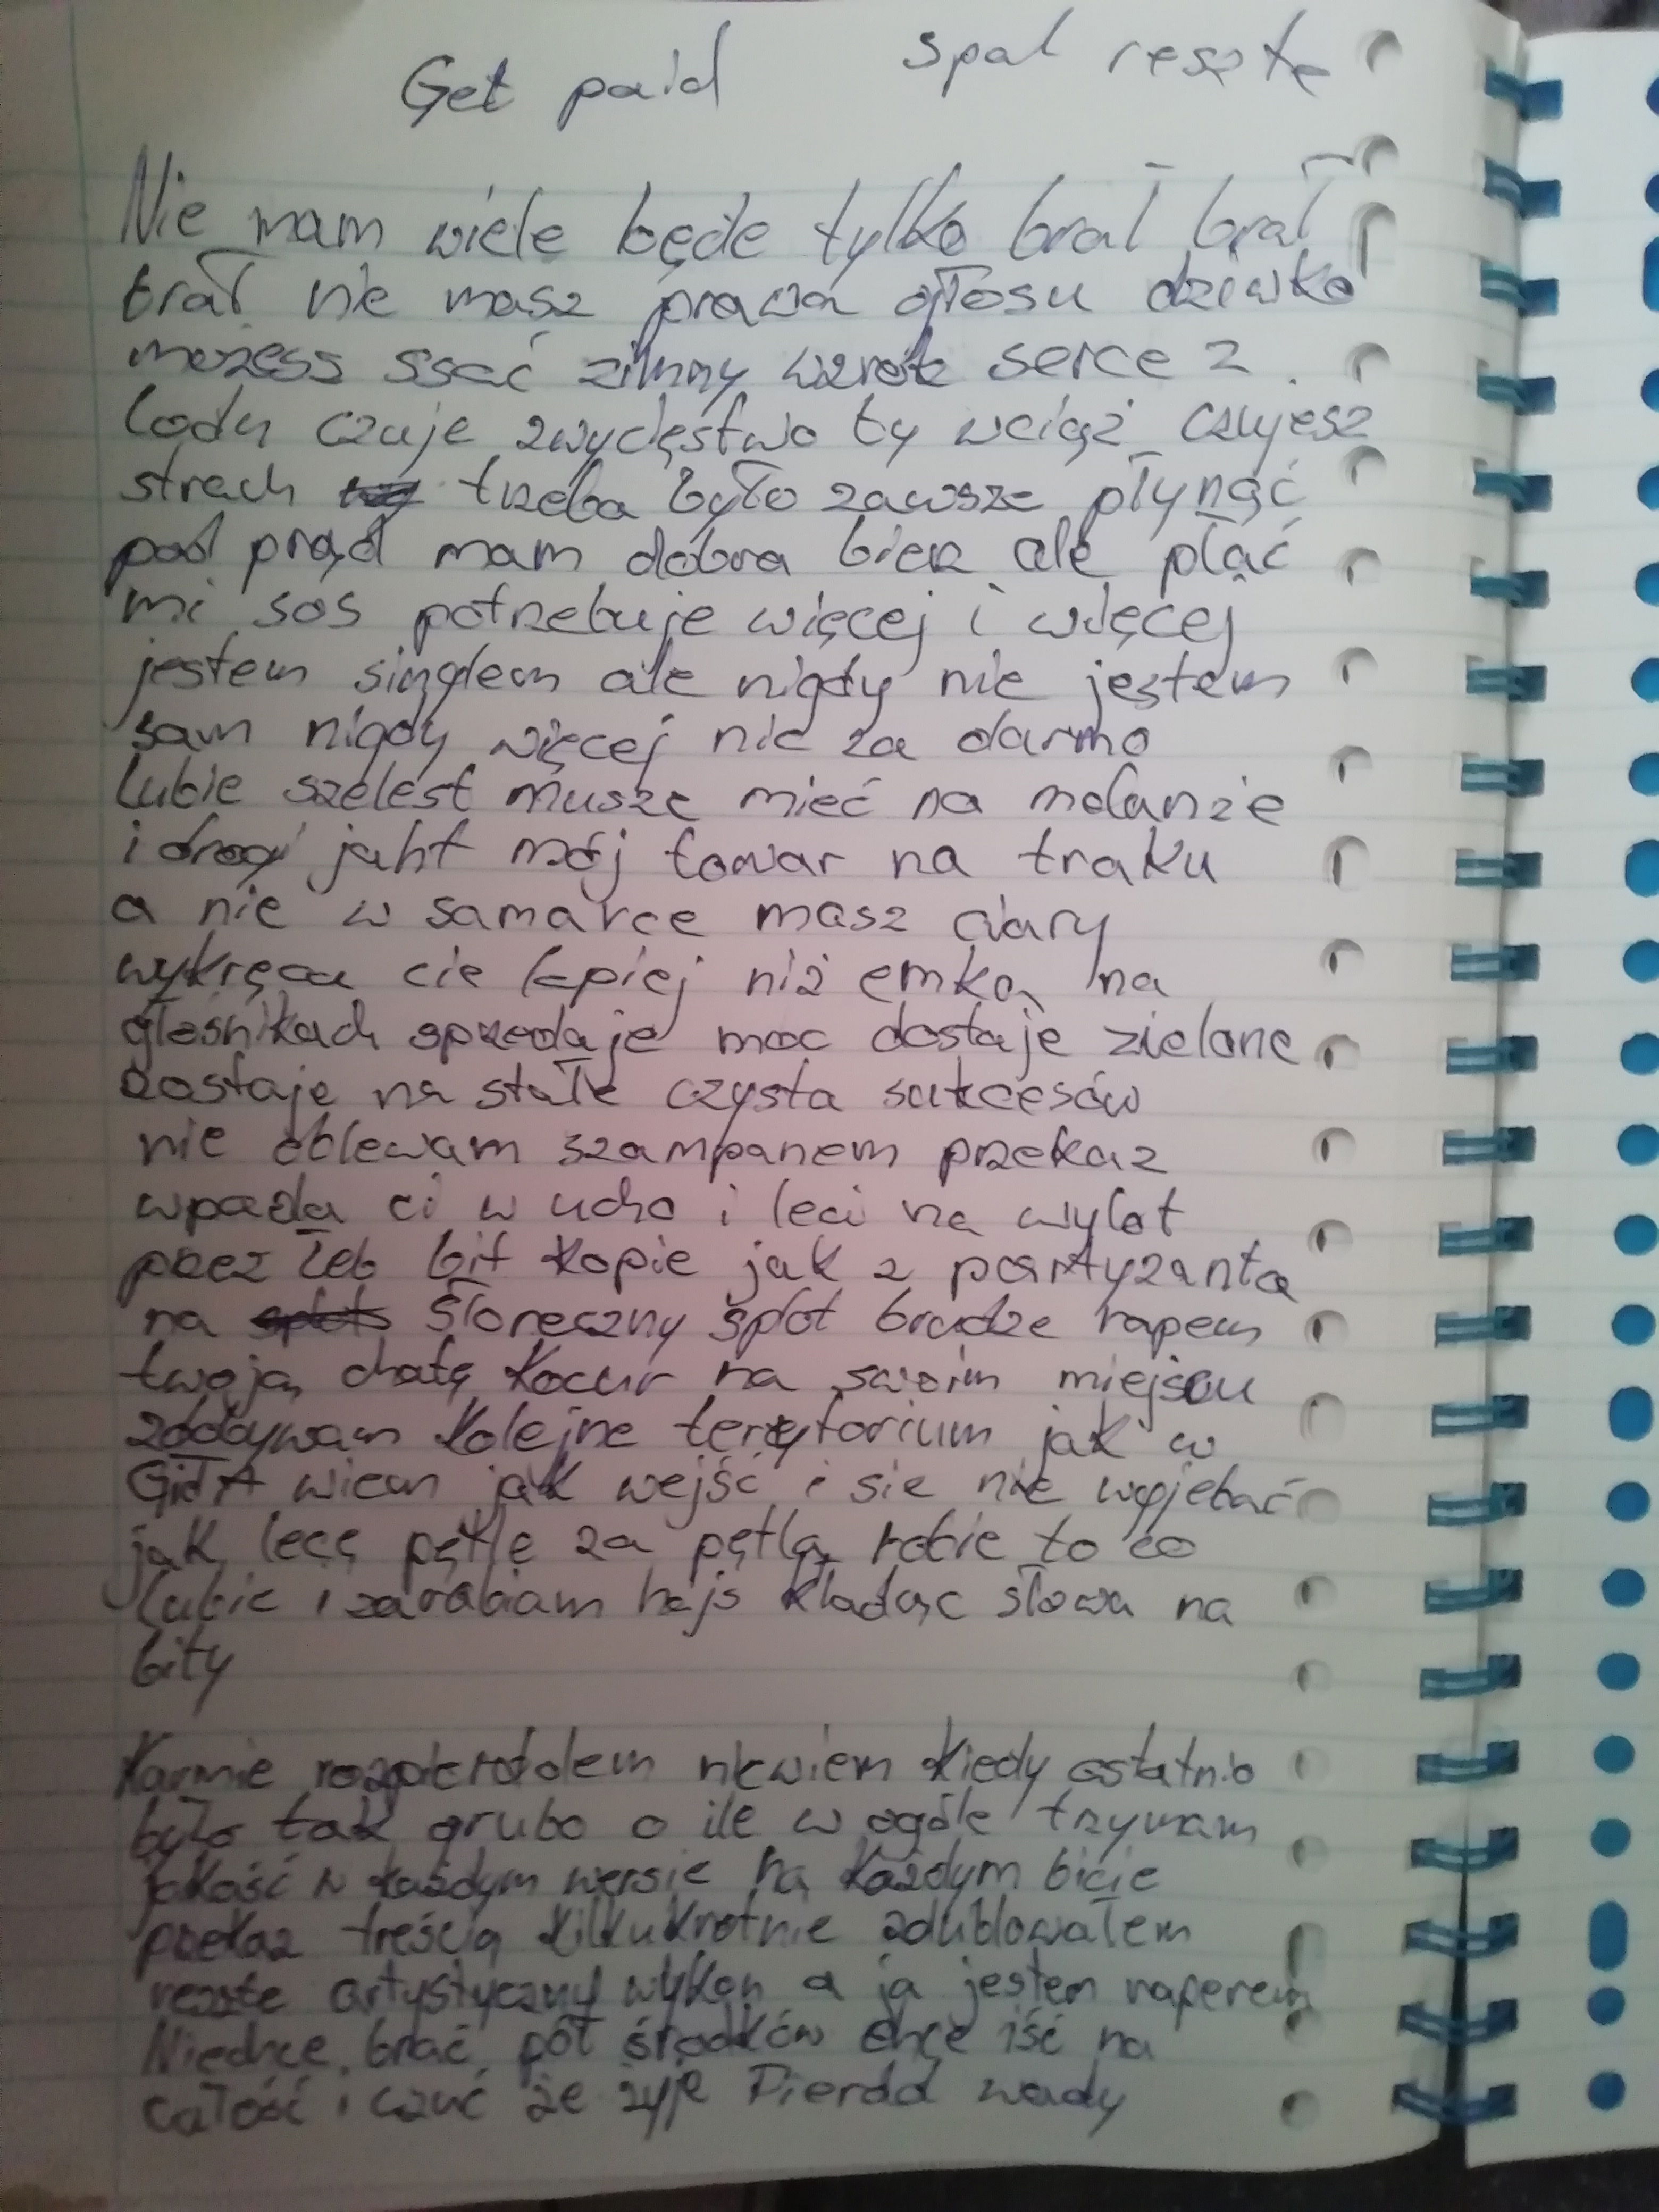 Get paid spal resztę
Nie mam wiele będe tylko brał brał
brał nie masz prawa głosu dziwko
możess ssać zimny wzrok serce z
lodu czuje zwycięstwo ty wciąż czujesz
strach trzeba było zawsze płynąć
pod prąd mam dobra bierz ale płać
mi sos potrzebuje więcej i więcej
jestem singlem ale nigdy nie jestem
sam nigdy więcej nic za darmo
lubie szelest musze mieć na melanże
i drogi jaht mój towar na traku
a nie w samarce masz ciary
wykręca cie lepiej niż emka na
głośnikach sprzedaje moc dostaje zielone
zostaje na stałe czysta sukcesów
nie oblewam szampanem przekaz
wpada ci w ucho i leci na wylot
przez łeb bit kopie jak z partyzanta
na słoneczny splot brudze rapem
twoją chatę kocur na swoim miejscu
zdobywam kolejne terytorium jak w
GTA wiem jak wejść i sie nie wyjebać
jak lecę pętlę za pętlą robie to co
lubie i zarabiam hajs kładąc słowa na
bity
Karmie niewiem kiedy ostatnio
było tak grubo o ile w ogóle trzymam
jakość w każdym wersie na każdym bicie
przekaz treścią kilkukrotnie zdublowałem
resztę artystyczny wykon a ja jestem raperem
Niechcę brać pół środków chcę iść na
całość i czuć że żyję wady